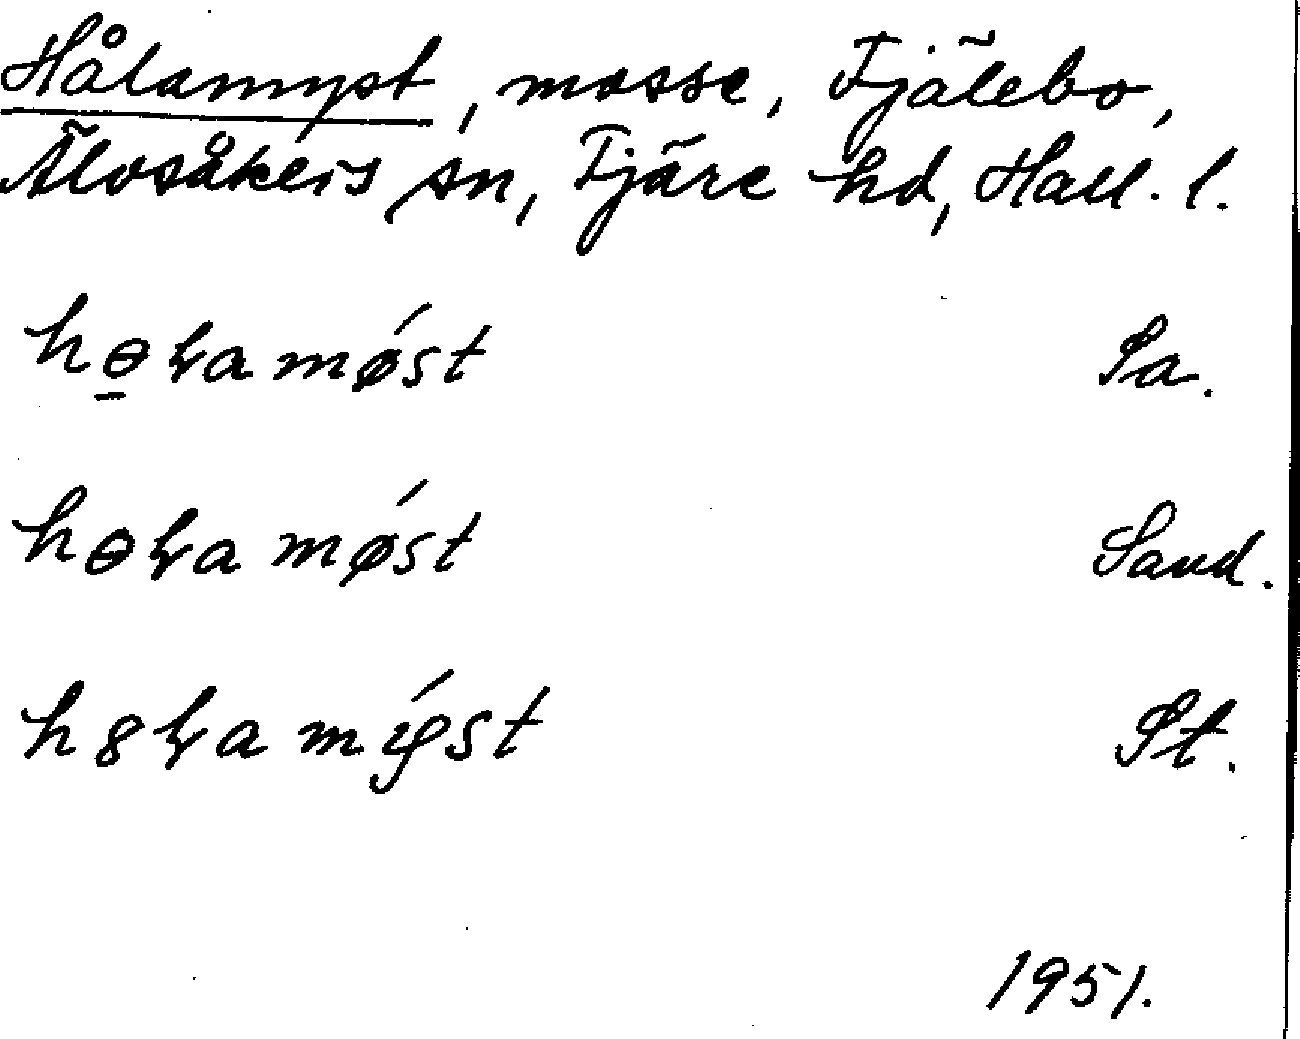 Hålamyst, mosse, Fjälebo,
Älvsåkers sn, Fjäre hd, Hall. l.
hɵɽa møśt Sa.
hɵɽa møśt Sand.
h8ɽa mýst St.
1951.